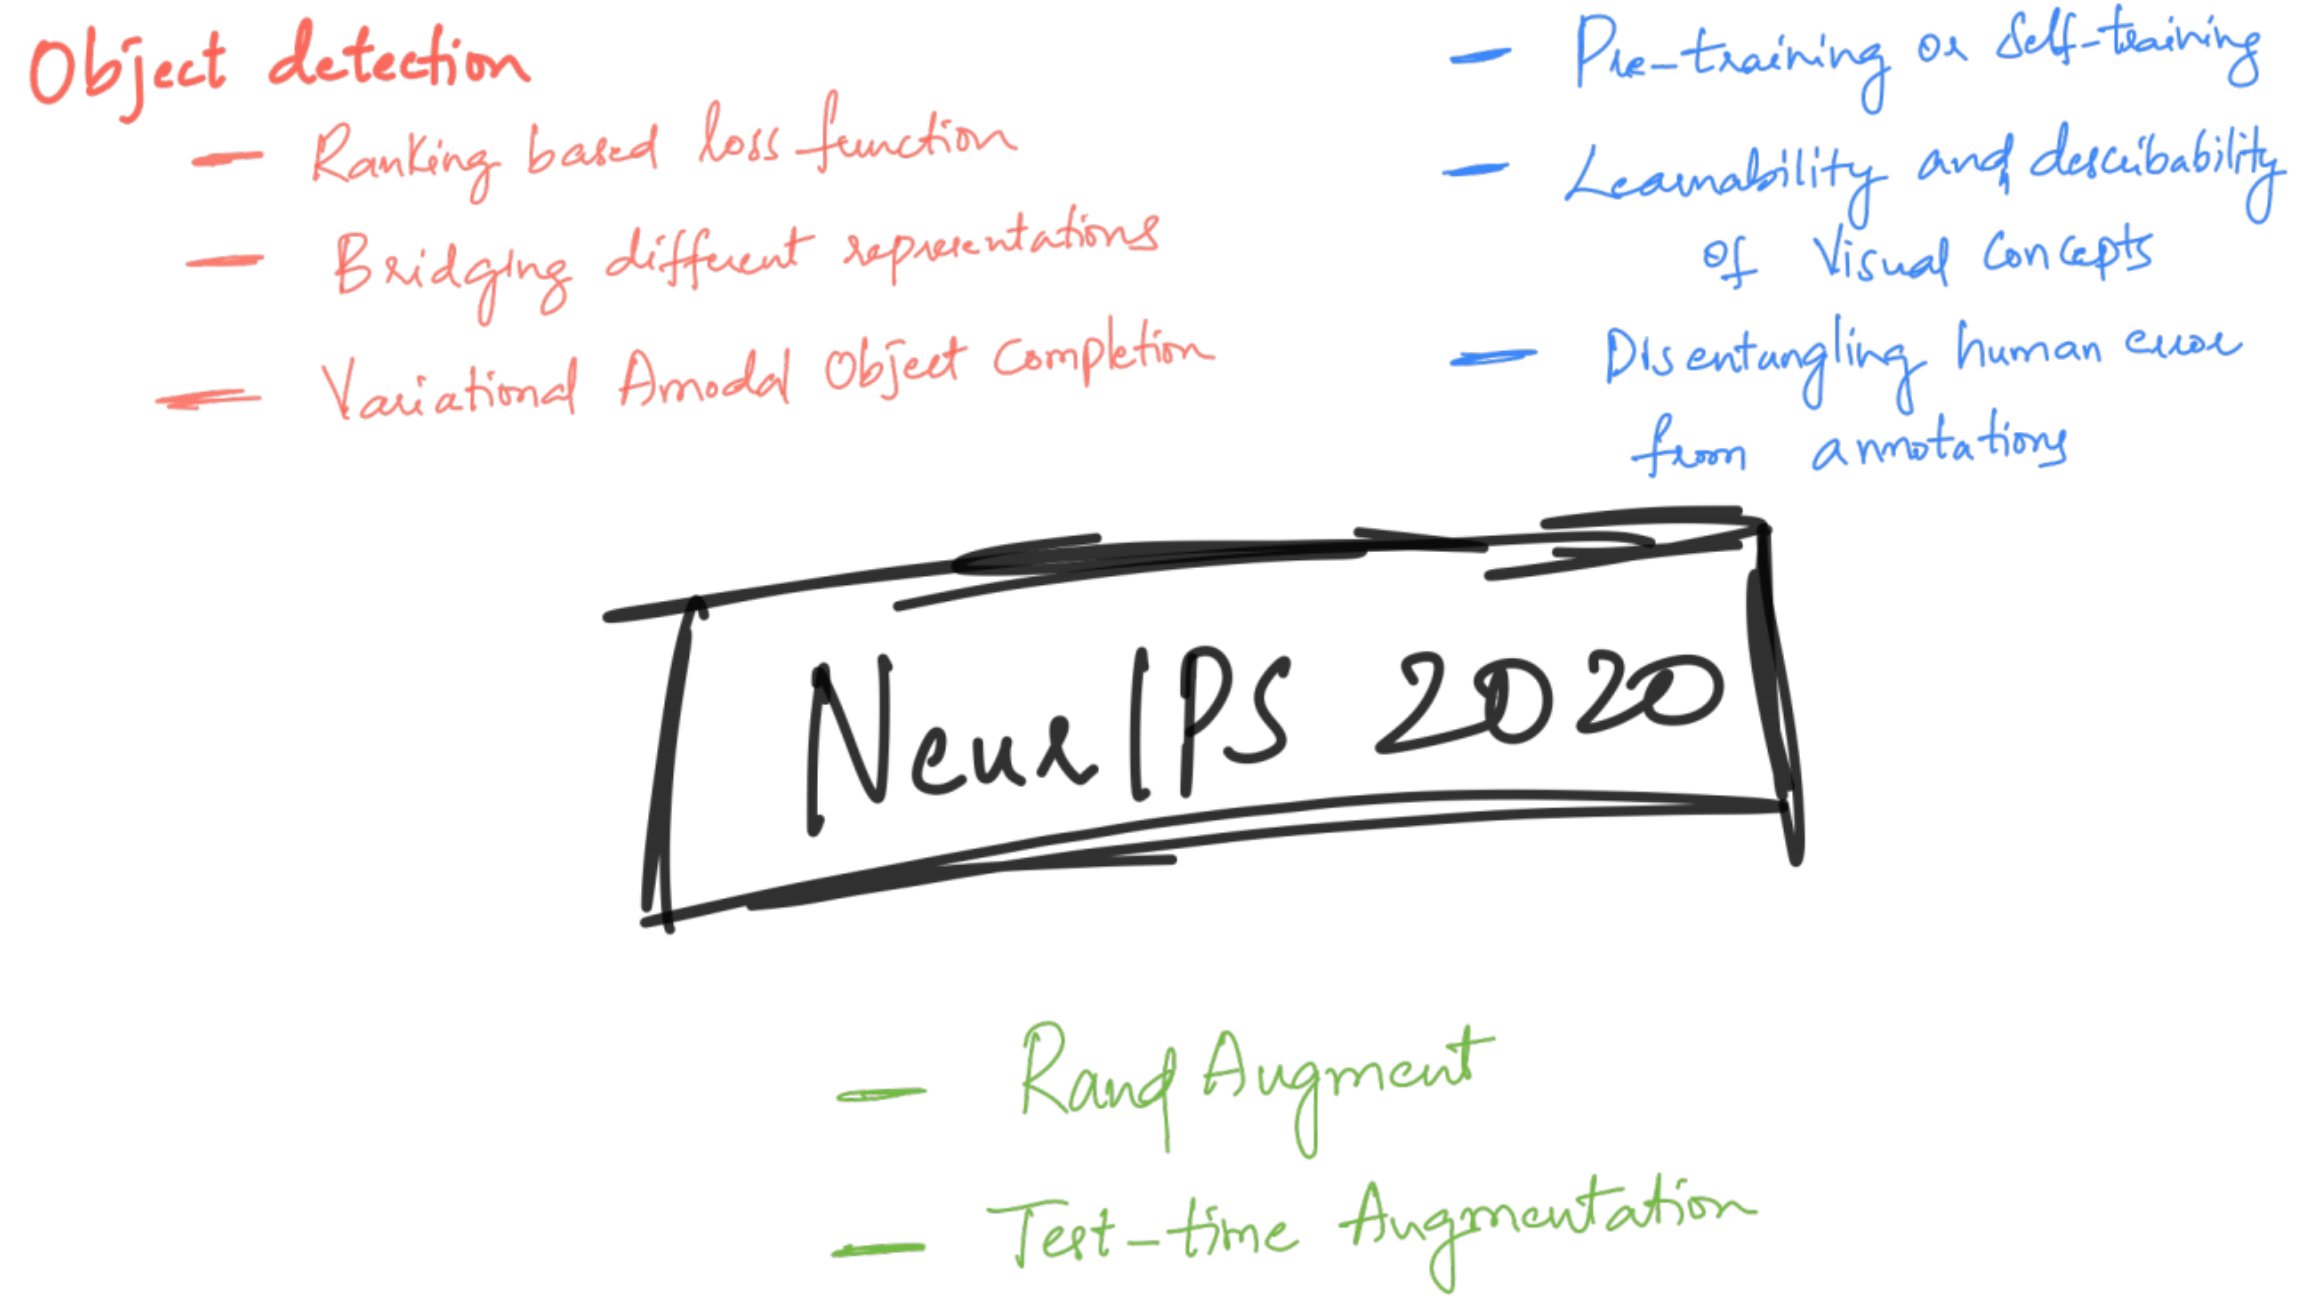 Object detection
- Ranking based loss function
- Bridging different representations
- Variational Amodal Object Completion
- Pre-training or Self-training
- Learnability and describability
of Visual Concepts
- Disentangling human error
from annotations
NeurIPS 2020
- Rand Augment
- Test-time Augmentation